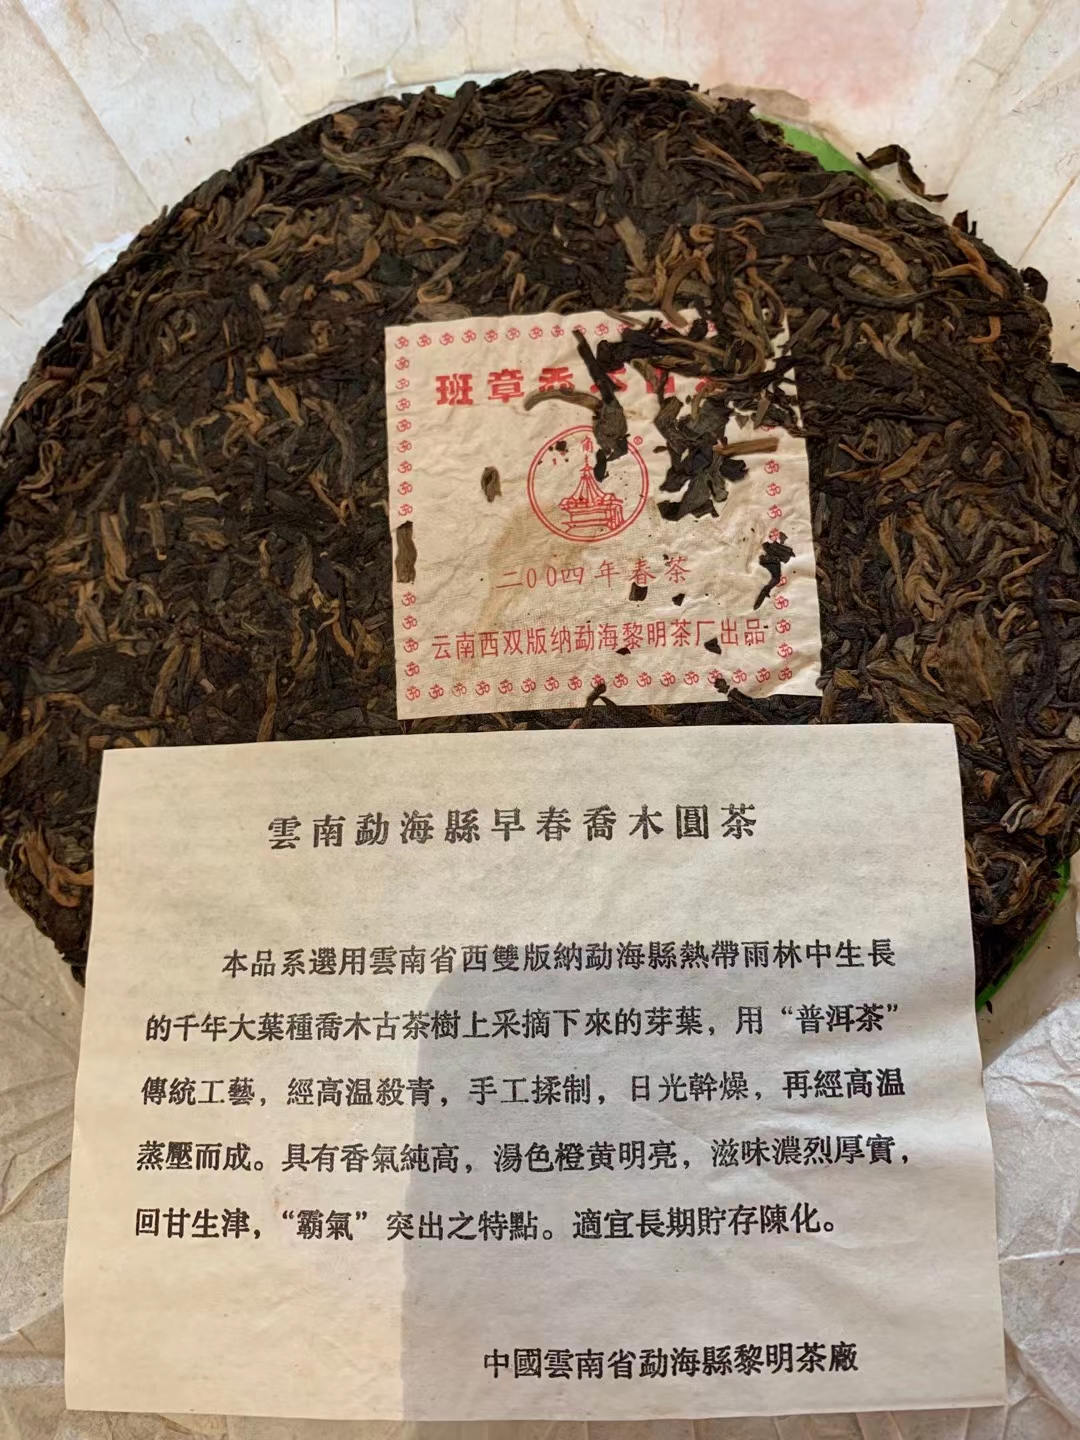 班章乔
®
二00四年春茶
云南西双版纳勐海黎明茶厂出品
雲南勐海縣早春喬木圓茶
本品系選用雲南省西雙版納勐海縣熱帶雨林中生長
的千年大葉種喬木古茶樹上采摘下來的芽葉，用“普洱茶”
傳統工藝，經高温殺青，手工揉制，日光幹燥，再經高温
蒸壓而成。具有香氣純高，湯色橙黄明亮，滋味濃烈厚實，
回甘生津，“霸氣”突出之特點。適宜長期貯存陳化。
中國雲南省勐海縣黎明茶廠